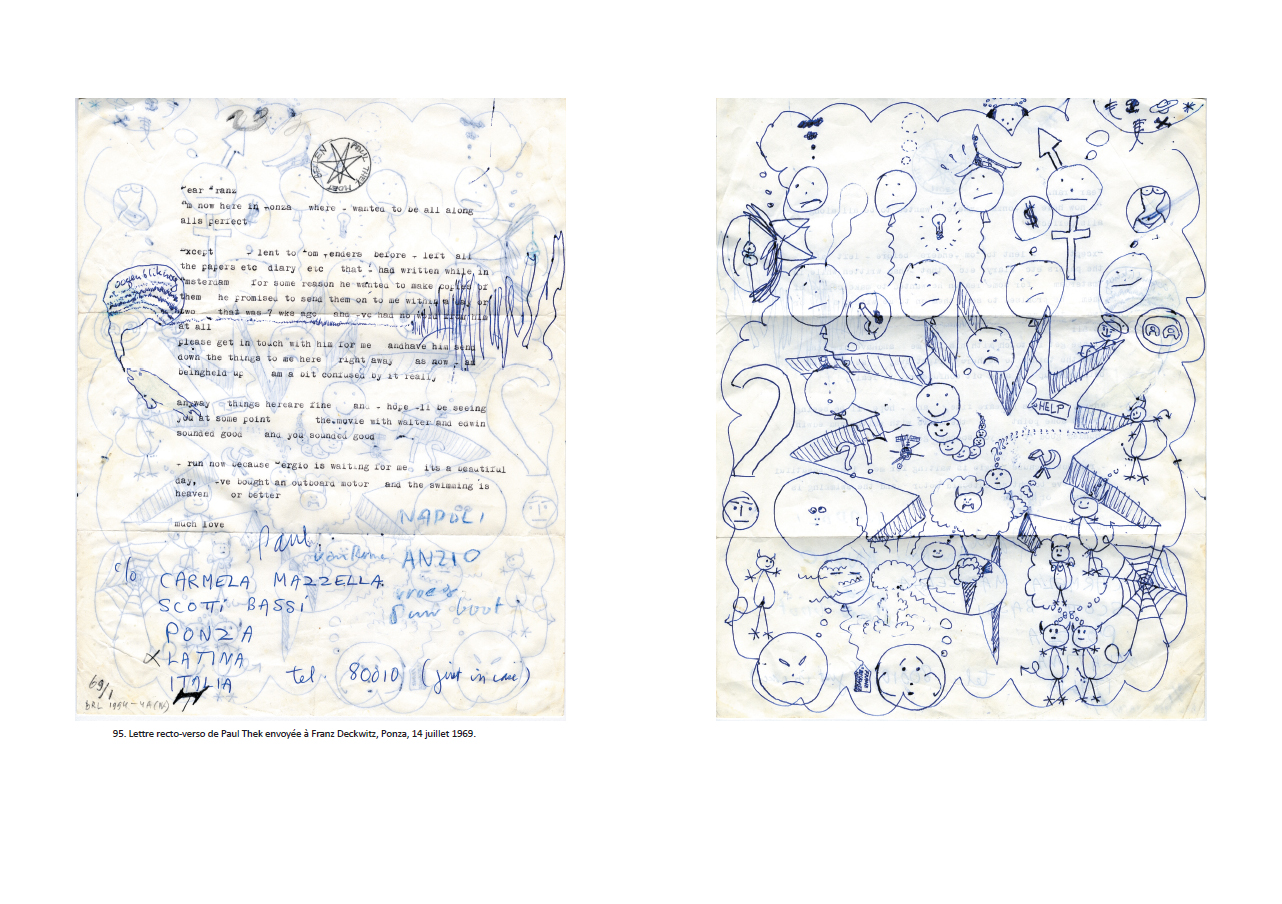 PAUL THEK
"ear "ranz
"m now here in "onza where - wanted to be all along
alls perfect
"xcept lent to "om "enders before - left all
the papers etc diary etc that - had written while in
"msterdam for some reason he wanted to make copies of
them he promised to send them on to me within a day or
two that was 7 wks ago and -ve had no word from him
at all
please get in touch with him for me andhave him send
down the things to me here right away as now - am
beingheld up am a bit confused by it really
anyway things hereare fine and - hope -ll be seeing
you at some point the movie with walter and edwin
sounded good and you sounded good
- run now because "ergio is waiting for me its a beautiful
day, -ve bought an outboard motor and the swimming is
heaven or better
much love
Paul
NAPOLI
ANZIO
boot
c/o CARMELA MAZZELLA
SCOTTI BASSI
PONZA
LATINA
ITALIA
tel. 80010 (just in case)
69/1
$
HELP
95. Lettre recto-verso de Paul Thek envoyée à Franz Deckwitz, Ponza, 14 juillet 1969.